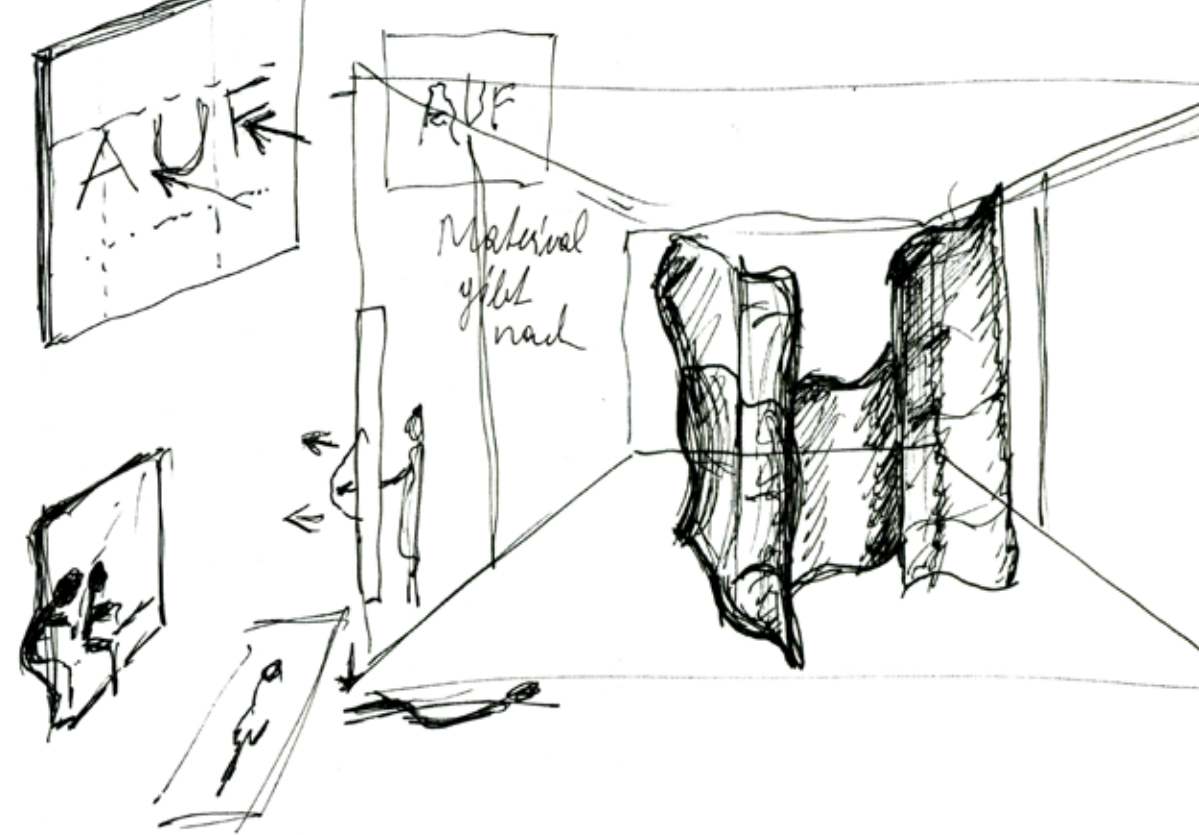 AUF
AUF
Material
gibt
nach